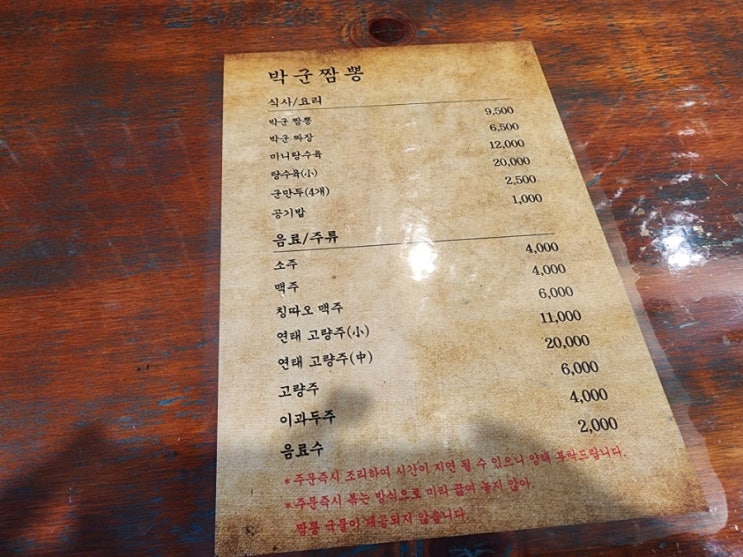 박군짬뽕
식사/요리
박군 짬뽕 9,500
박군 짜장 6,500
미니탕수육 12,000
탕수육(小) 20,000
군만두(4개) 2,500
공기밥 1,000
음료/주류
소주 4,000
맥주 4,000
칭따오 맥주 6,000
연태 고량주(小) 11,000
연태 고량주(中) 20,000
고량주 6,000
이과두주 4,000
음료수 2,000
*주문즉시 조리하여 시간이 지연 될 수 있으니 양해 부탁드립니다.
*주문즉시 볶는 방식으로 미리 끓여 놓지 않아.
짬뽕 국물이 제공되지 않습니다.